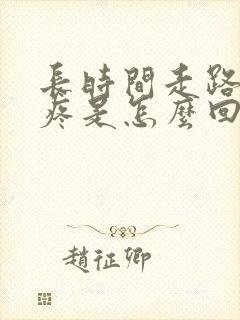 長時間走路
疼是怎麼回
趙征卿